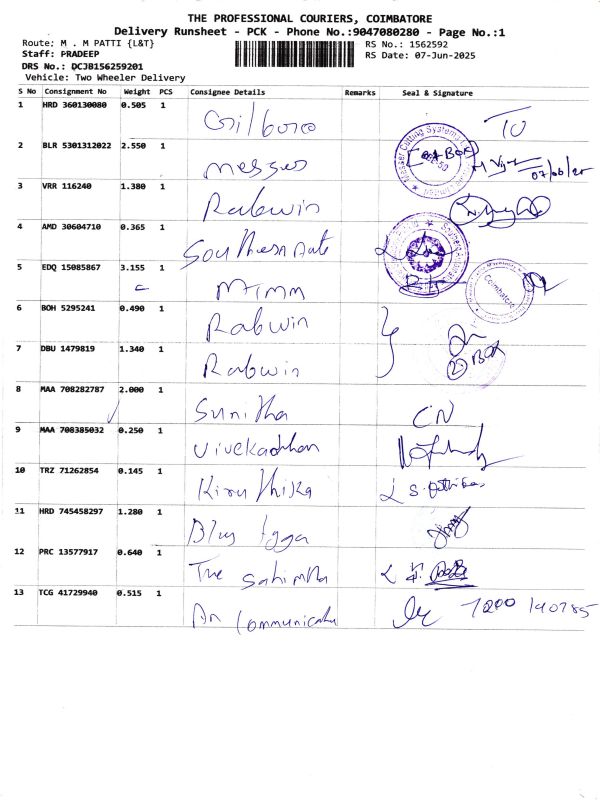 THE PROFESSIONAL COURIERS, COIMBATORE
Delivery Runsheet - PCK - Phone No.:9047080280 - Page No.:1
Route: M . M PATTI {L&T} RS No.: 1562592
Staff: PRADEEP RS Date: 07-Jun-2025
DRS No.: DCJB156259201
Vehicle: Two Wheeler Delivery
S No Consignment No Weight PCS Consignee Details Remarks Seal & Signature
1 HRD 360130080 0.505 1
2 BLR 5301312022 2.550 1 messer 07/06/25
3 VRR 116240 1.380 1 Rabwin
4 AMD 30604710 0.365 1
5 EDQ 15085867 3.155 1 Coimbatore
6 BOH 5295241 0.490 1 Rabwin
7 DBU 1479819 1.340 1 Rabwin 2 BOX
8 MAA 708282787 2.000 1 Sunitha CN
9 MAA 708385032 0.250 1
10 TRZ 71262854 0.145 1 Kiruthika
11 HRD 745458297 1.280 1
12 PRC 13577917 0.640 1 The
13 TCG 41729940 0.515 1